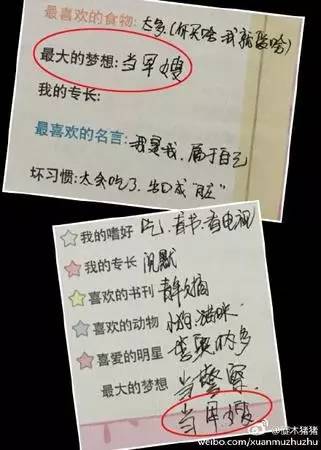 最喜欢的食物:太多.(你买啥我就医啥)
最大的梦想:当军嫂
我的专长:
最喜欢的名言:我是我,属于自己
坏习惯:太会吃了,出口成"脏"
我的嗜好 吃.看书.看电视
我的专长 沉默
喜欢的书刊 青年文摘
喜欢的动物 小狗.猫咪.
喜爱的明星
最大的梦想 当警察.
当军嫂
@炫木猪猪
weibo.com/xuanmuzhuzhu